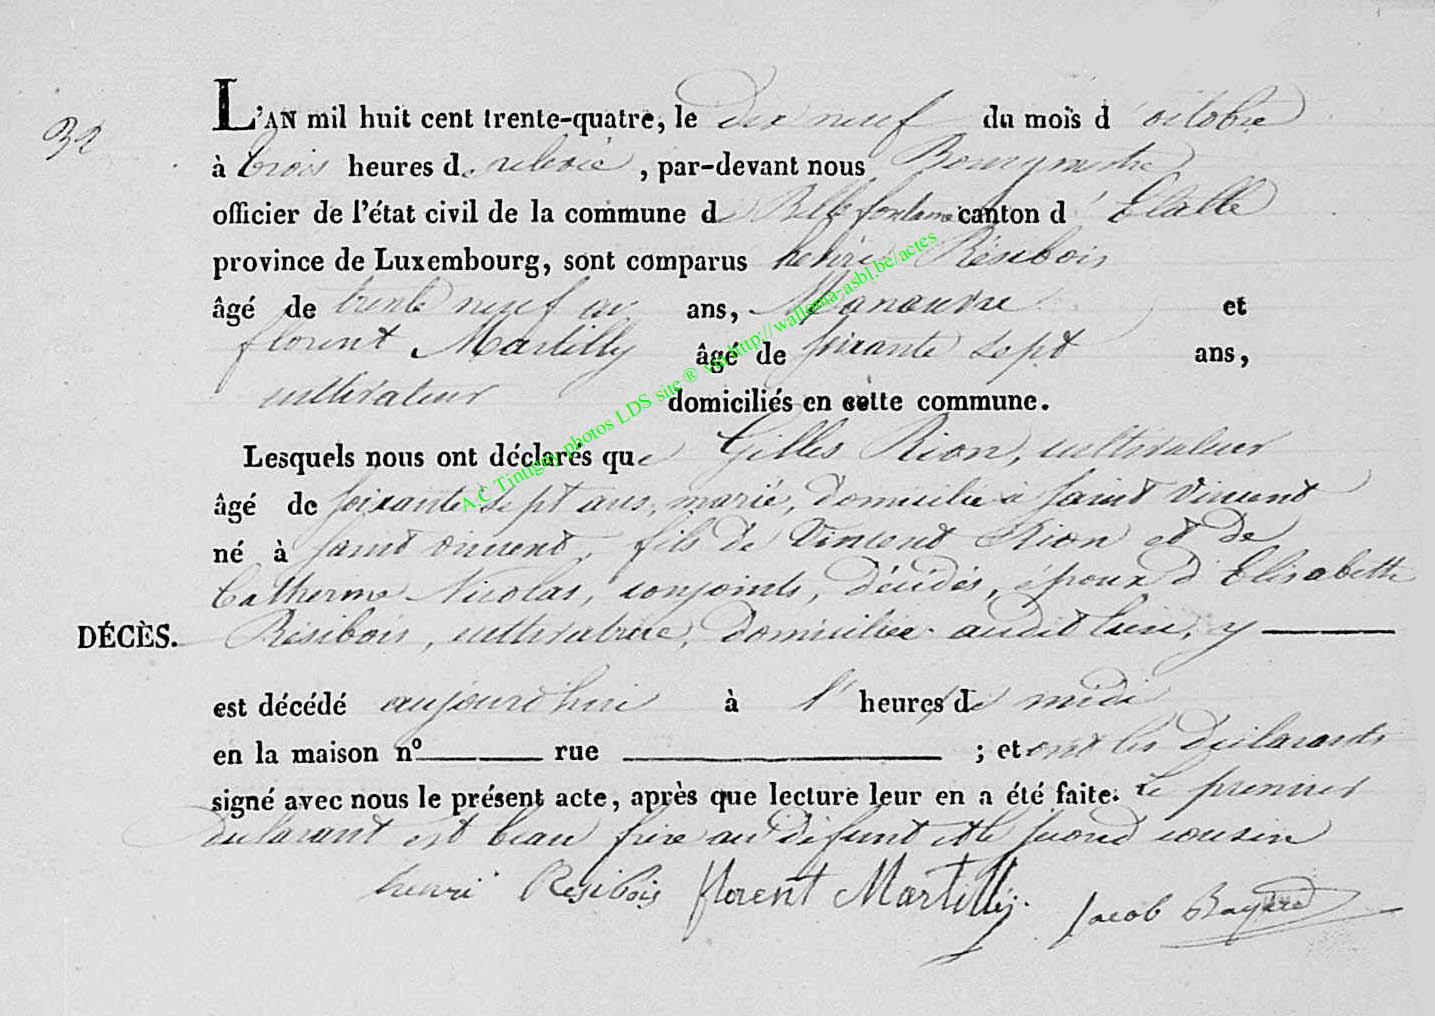 32
L'AN mil huit cent trente-quatre, le dix neuf du mois d'octobre
à trois heures de relevée, par-devant nous Bourgmestre
officier de l'état civil de la commune de Bellefontaine canton d'Etalle
province de Luxembourg, sont comparus henri Résibois
âgé de trente neuf ans, Manœuvre et
florent Martilly âgé de soixante sept ans,
cultivateur domiciliés en cette commune.
Lesquels nous ont déclarés que Gilles Rion, cultivateur
âgé de soixante sept ans, marié, domicilié à Saint Vincent
né à Saint Vincent, fils de Vincent Rion et de
Catherine Nicolas, conjoints, décédés, époux d'Elisabeth
DÉCÈS. Résibois, cultivatrice, domiciliée audit lieu, y
est décédé aujourd'hui à 1' heures de midi
en la maison nº rue ; et ont les déclarants
signé avec nous le présent acte, après que lecture leur en a été faite. Le premier
déclarant est beau frère au défunt et le second cousin
henri Resibois florent Martilly Jacob Bayard
A.C Tintigny photos LDS site ® via http://wallonia-asbl.be/actes